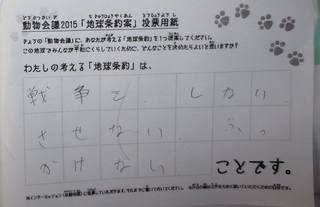 動物会議2015「地球条約案」投票用紙
きょうの「動物会議」に、あなたが考える「地球条約」を1つ提案してください。
この地球でみんなが平和にくらしていくために、どんなことを決めたらよいと思いますか?
わたしの考える「地球条約」は、
戦争を、しない、
させない、ふっ
かけない
ことです。